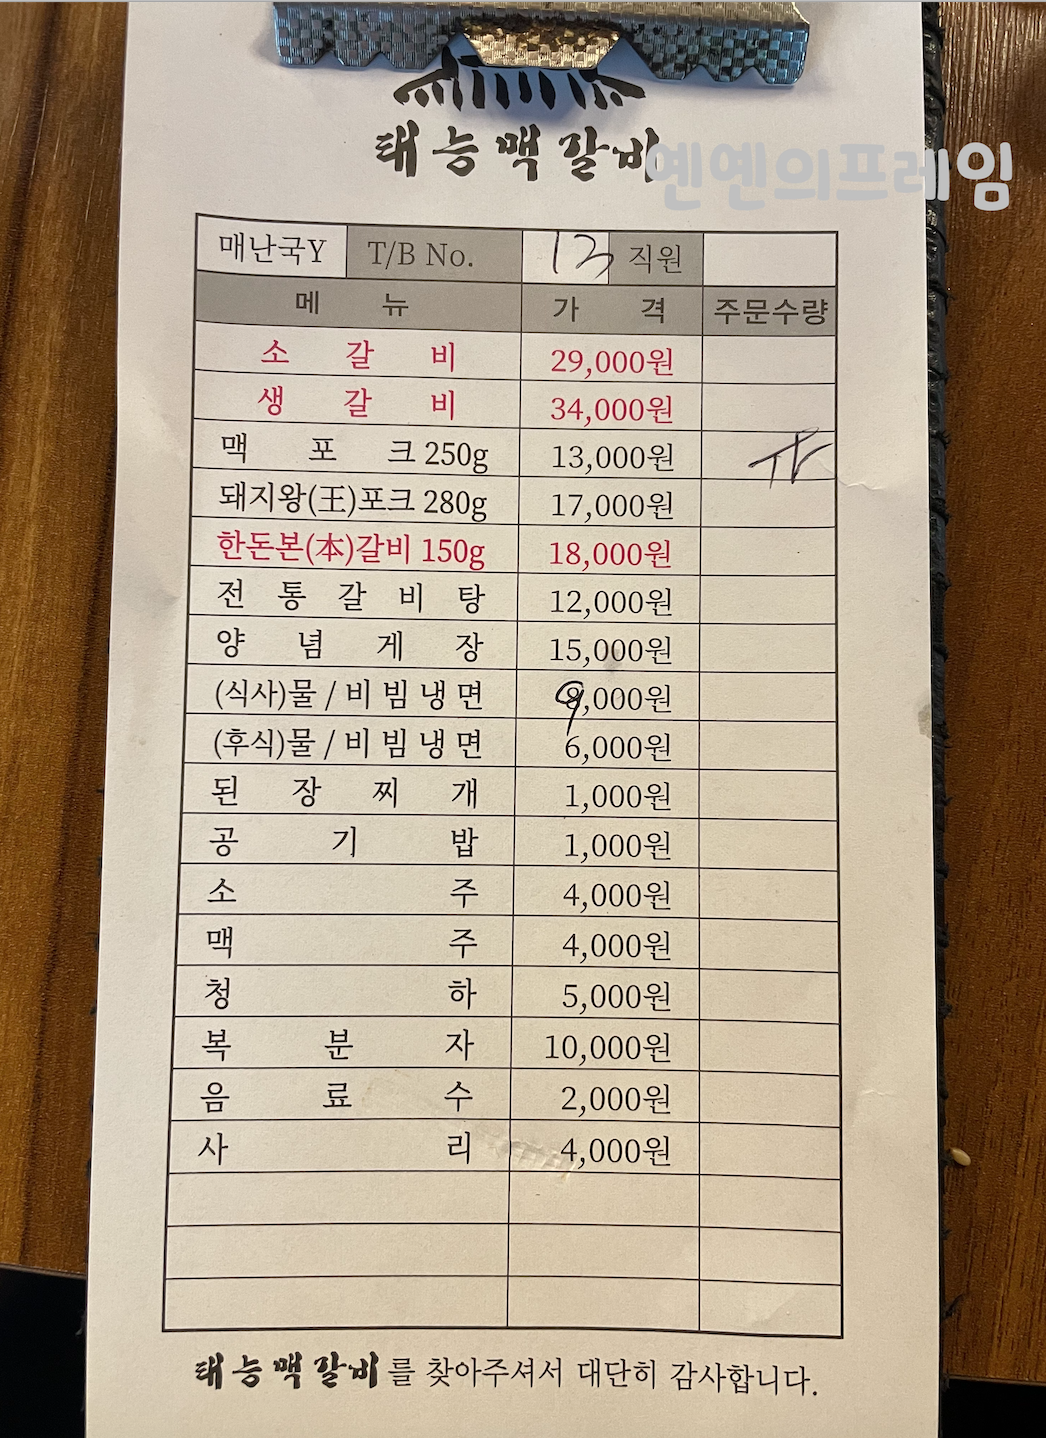 태능맥갈비
옌옌의프레임
매난국Y T/B No. 13 직원
메 뉴 가 격 주문수량
소 갈 비 29,000원
생 갈 비 34,000원
맥 포 크 250g 13,000원
돼지왕(王)포크 280g 17,000원
한돈본(本)갈비 150g 18,000원
전 통 갈 비 탕 12,000원
양 념 게 장 15,000원
(식사)물 / 비 빔 냉 면 9,000원
(후식)물 / 비 빔 냉 면 6,000원
된 장 찌 개 1,000원
공 기 밥 1,000원
소 주 4,000원
맥 주 4,000원
청 하 5,000원
복 분 자 10,000원
음 료 수 2,000원
사 리 4,000원
태능맥갈비를 찾아주셔서 대단히 감사합니다.